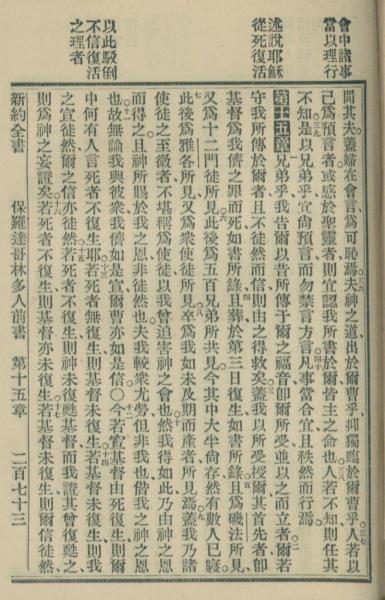 會中諸事
當以理行
述說耶穌
從死復活
以此駁倒
不信復活
之理者
問其夫蓋婦在會言爲可恥焉夫神之道出於爾曹乎抑獨臨於爾曹乎人若以
己爲預言者或感於聖靈者則宜認我所書於爾皆主之命也人若不知則任其
不知是以兄弟乎宜尙預言而勿禁言方言凡事當合宜且秩然而行焉
第十五章 兄弟乎我告爾以昔所傳于爾之福音卽爾所受並以之而立者爾若
守我所傳於爾者且不徒然而信則由之得救矣蓋我以所受授爾其首先者卽
基督爲我儕之罪而死如書所錄且葬於第三日復生如書所錄且爲磯法所見
又爲十二門徒所見此後爲五百兄弟所共見今其中大半尙存然有數人已寢
此後爲雅各所見又爲衆使徒所見卒爲我如未及期而產者所見焉蓋我乃諸
使徒之至微者不堪稱爲使徒以我曾迫害神之會也然我得如此乃由神之恩
而得之且神所賜於我之恩非徒然也夫我較衆尤勞但非我也偕我之神之恩
也故無論我與彼衆我儕如是宣爾曹亦如是信〇今若宣基督由死復生則爾
中何有人言死者不復生耶若死者無復生則基督未復生若基督未復生則我
之宣徒然爾之信亦徒然若死者不復生則神未復甦基督而我證其曾復甦之
則爲神之妄證矣若死者不復生則基督亦未復生若基督未復生則爾信徒然
新約全書 保羅達哥林多人前書 第十五章 二百七十三